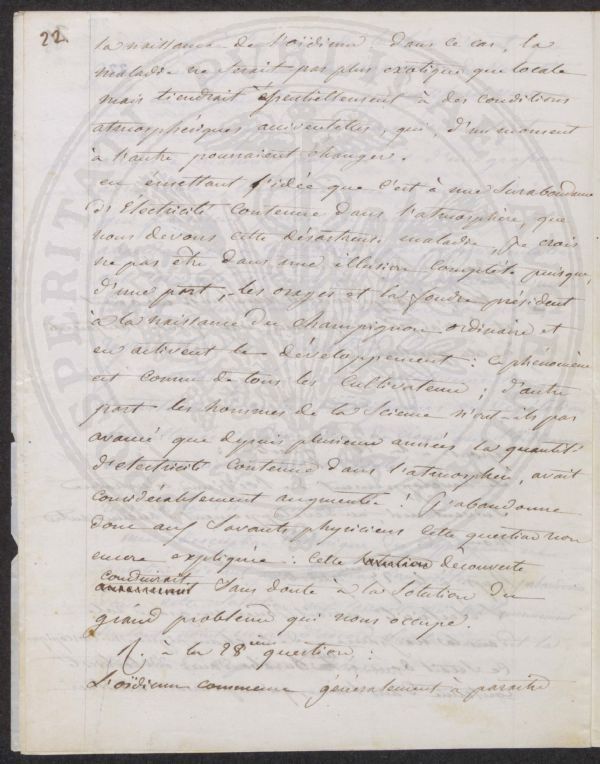 22.
la naissance de l'oïdium dans ce cas, la
maladie ne serait pas plus exotique que locale
mais tiendrait essentiellement à des conditions
atmosphériques accidentelles, qui, d'un moment
à l'autre pourraient changer.
en émettant l'idée que c'est à une surabondance
d'Electricité contenue dans l'atmosphère, que
nous devons cette désastreuse maladie, je crois
ne pas être dans une illusion complète puisque,
d'une part, les orages et la foudre président
à la naissance du champignon ordinaire et
en activent le développement : ce phénomène
est connu de tous les cultivateurs ; d'autre
part les hommes de la Science n'ont-ils pas
avancé que depuis plusieurs années la quantité
d'electricité contenue dans l'atmosphère, avait
considérablement augmenté ! J'abandonne
donc aux savants physiciens cette question non
encore expliquée : cette découverte
conduirait sans doute à la solution du
grand problème qui nous occupe.
R. à la 28ieme question :
L'oïdium commence généralement à paraître